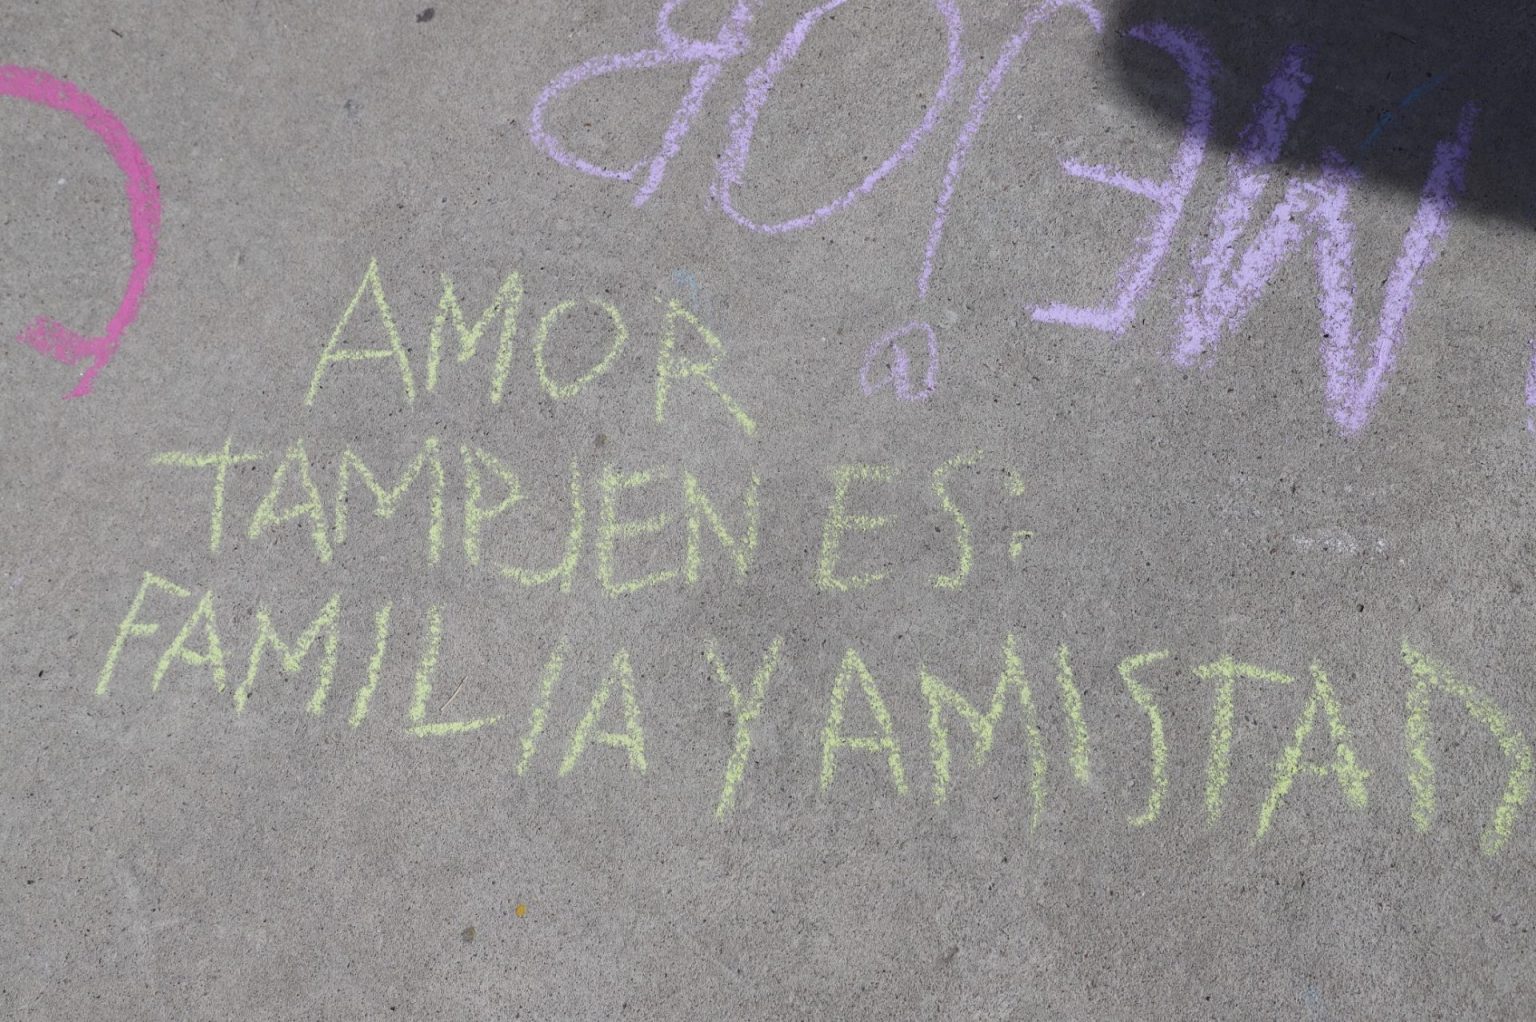 AMOR
TAMBJEN ES:
FAMILIA Y AMISTAD
MEJOR